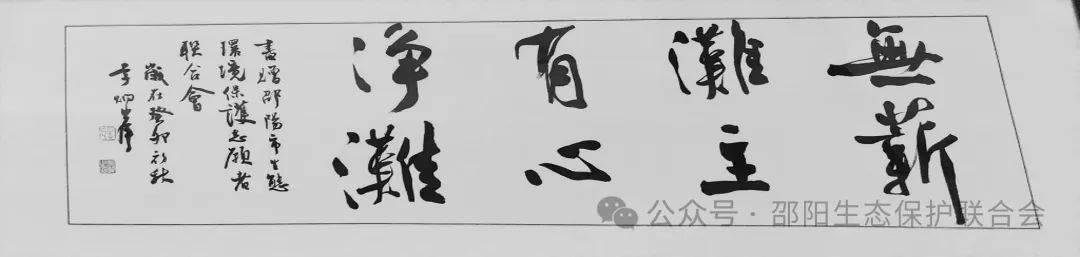 無薪
灘主
有心
淨灘
書贈邵陽市生態
環境保護志願者
联合會
歲在癸卯初秋
公众号·邵阳生态保护联合会